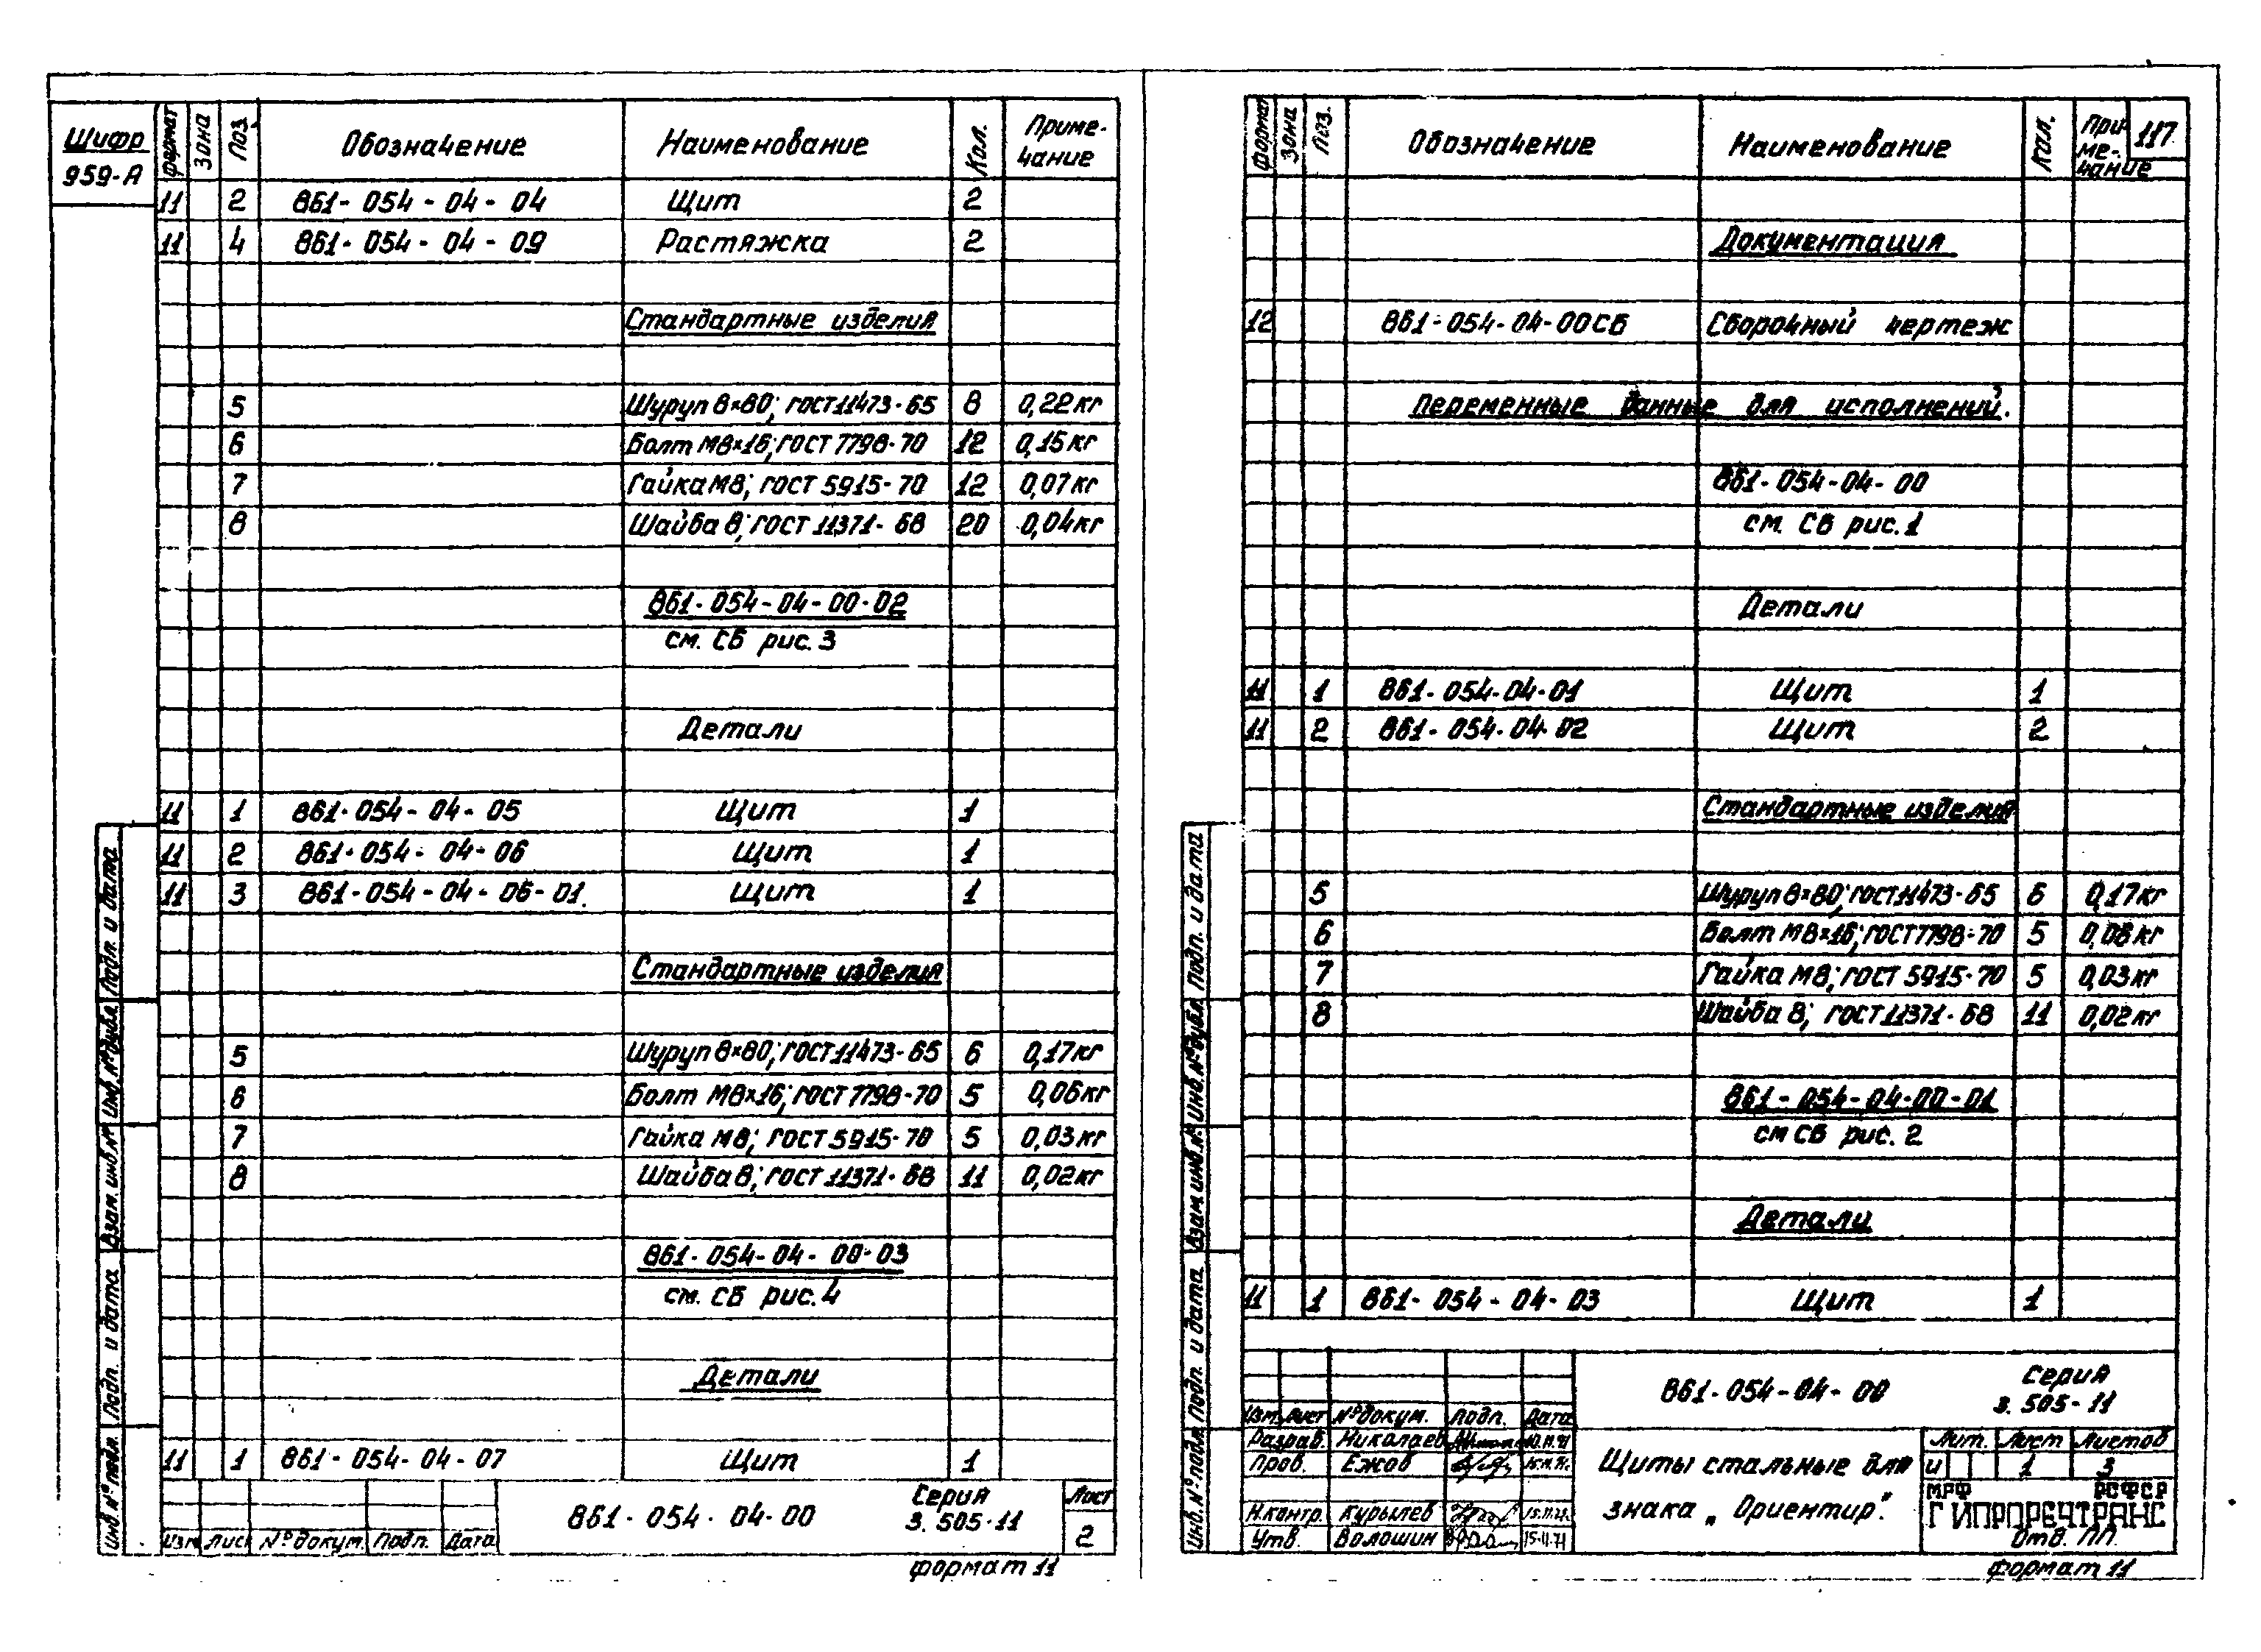 Шифр
959-А
формат Зона Поз. Обозначение Наименование Кол. Приме-
чание
11 2 861-054-04-04 Щит 2
11 4 861-054-04-09 Растяжка 2
Стандартные изделия
5 Шуруп 8×80; ГОСТ 11473-65 8 0,22кг
6 Болт М8×16; ГОСТ 7798-70 12 0,15кг
7 Гайка М8; ГОСТ 5915-70 12 0,07кг
8 Шайба 8; ГОСТ 11371-68 20 0,04кг
861-054-04-00-02
см. СБ рис. 3
Детали
11 1 861-054-04-05 Щит 1
11 2 861-054-04-06 Щит 1
11 3 861-054-04-06-01. Щит 1
Стандартные изделия
5 Шуруп 8×80; ГОСТ 11473-65 6 0,17кг
6 Болт М8×16; ГОСТ 7798-70 5 0,06кг
7 Гайка М8; ГОСТ 5915-70 5 0,03кг
8 Шайба 8; ГОСТ 11371-68 11 0,02кг
861-054-04-00-03
см. СБ рис. 4
Детали
11 1 861-054-04-07 Щит 1
Изм Лист № докум. Подп. Дата
861-054-04-00
Серия
3.505-11
Лист
2
формат 11
Инв. № подл. Подп. и дата Взам. инв. № Инв. № дубл. Подп. и дата
формат Зона Поз. Обозначение Наименование Кол. При-
ме-
чание
117
Документация
12 861-054-04-00СБ Сборочный чертеж
Переменные данные для исполнений.
861-054-04-00
см. СБ рис. 1
Детали
11 1 861-054-04-01 Щит 1
11 2 861-054-04-02 Щит 2
Стандартные изделия
5 Шуруп 8×80; ГОСТ 11473-65 6 0,17кг
6 Болт М8×16; ГОСТ 7798-70 5 0,06кг
7 Гайка М8; ГОСТ 5915-70 5 0,03кг
8 Шайба 8; ГОСТ 11371-68 11 0,02кг
861-054-04-00-01
см СБ рис. 2
Детали
11 1 861-054-04-03 Щит 1
861-054-04-00
Серия
3.505-11
Изм. Лист № докум. Подп. Дата
Разраб. Николаев
Пров. Ежов
Н.контр. Курылев 15.11.71
Утв. Волошин 15.11.71
Щиты стальные для
знака „Ориентир".
Лит. Лист Листов
И 1 3
МРФ РСФСР
ГИПРОРЕЧТРАНС
Отд. ПП
формат 11
Инв. № подл. Подп. и дата Взам инв. № Инв. № дубл. Подп. и дата